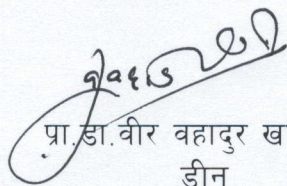 प्रा.डा.वीर वहादुर ख
डीन